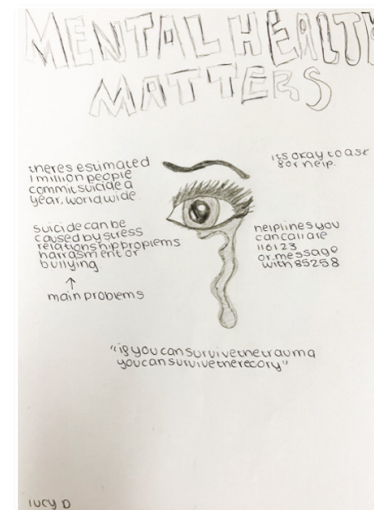 MENTAL HEALTH
MATTERS
theres estimated
1 million people
commit suicide a
year, worldwide
its okay to ask
for help.
suicide can be
caused by stress
relationship proplems
harrasment or
bullying
↑
main problems
helplines you
can call are
116123
or message
with 85258
"if you can survive the trauma
you can survive the recory"
lucy D